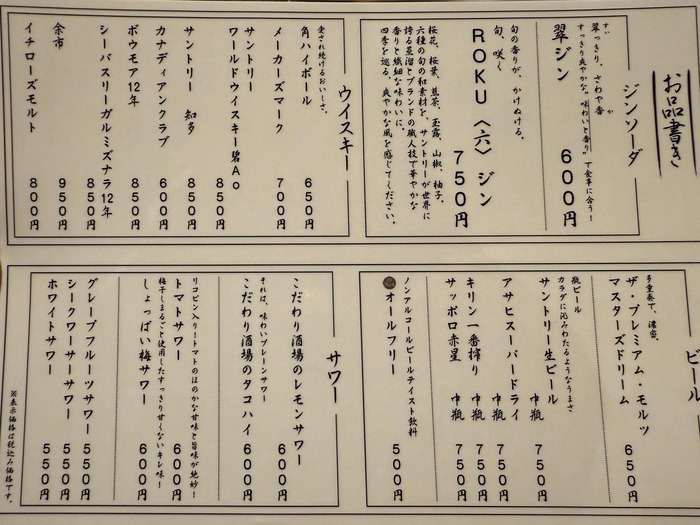 お品書き
ジンソーダ
翠っきり、さわや香
すい
か
すっきり爽やかな"味わいと香り"で食事に合う!
翠ジン 600円
旬の香りが、かけぬける。
旬、咲く
ROKU〈六〉ジン 750円
桜花、桜葉、煎茶、玉露、山椒、柚子。
六種の旬の和素材を、サントリーが世界に
誇る蒸溜とブランドの職人技で華やかな
香りと繊細な味わいに。
四季を巡る、爽やかな風を感じてください。
ウイスキー
愛され続けるおいしさ。
角ハイボール 650円
メーカーズマーク 700円
サントリー
ワールドウイスキー碧Ao 850円
サントリー 知多 850円
カナディアンクラブ 600円
ボウモア12年 850円
シーバスリーガルミズナラ12年 850円
余市 950円
イチローズモルト 800円
ビール
多重奏で、濃密。
ザ・プレミアム・モルツ
マスターズドリーム 650円
瓶ビール
カラダに沁みわたるようなうまさ
サントリー生ビール 中瓶 750円
アサヒスーパードライ 中瓶 750円
キリン一番搾り 中瓶 750円
サッポロ赤星 中瓶 750円
ノンアルコールビールテイスト飲料
オールフリー 500円
サワー
こだわり酒場のレモンサワー 600円
それは、味わいプレーンサワー
こだわり酒場のタコハイ 600円
リコピン入りトマトのほのかな甘味と旨味が絶妙!
トマトサワー 600円
梅干しまるごと使用したすっきり甘くないキレ味!
しょっぱい梅サワー 600円
グレープフルーツサワー 550円
シークワーサーサワー 550円
ホワイトサワー 550円
※表示価格は税込み価格です。